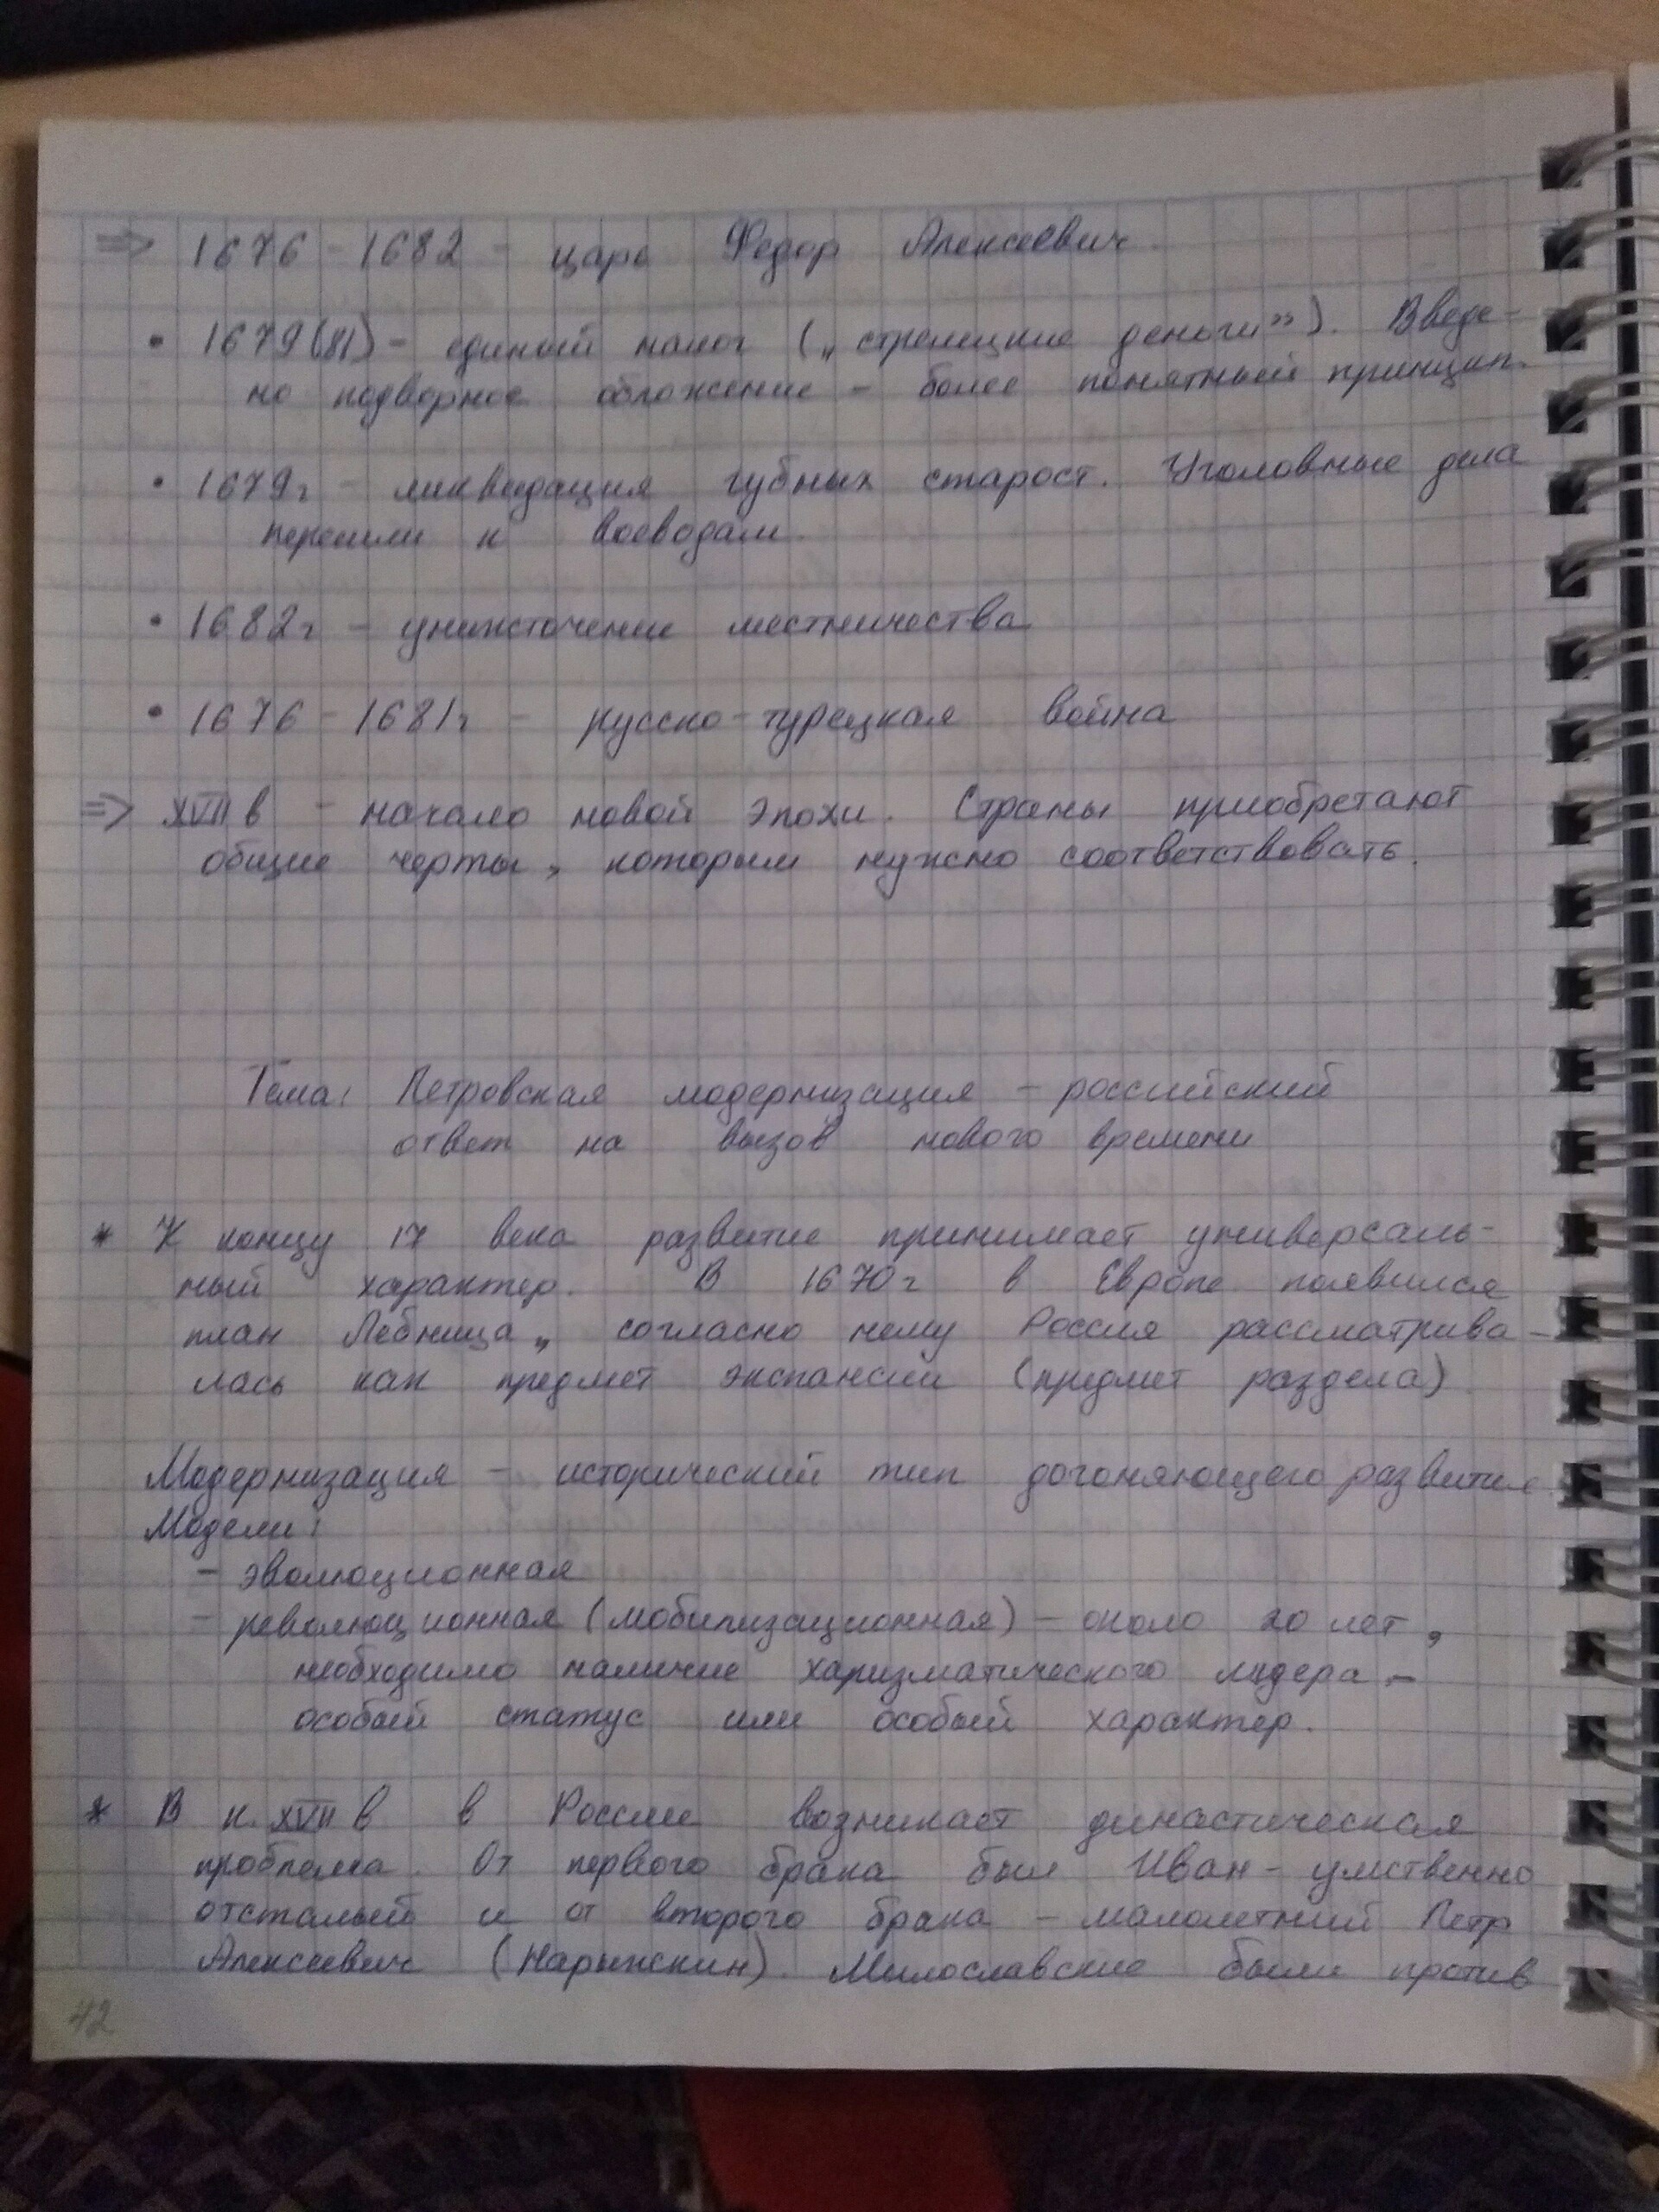 ⇒ 1676 – 1682 – царь Федор Алексеевич.
• 1679(81) – единый налог („стрелецкие деньги"). Введе-
но подворное обложение – более понятный принцип.
• 1679г – ликвидация губных старост. Уголовные дела
перешли к воеводам.
• 1682г – уничтожение местничества
• 1676 – 1681г – русско-турецкая война
⇒ XVII в – начало новой эпохи. Страны приобретают
общие черты, которым нужно соответствовать.
Тема: Петровская модернизация – российский
ответ на вызов нового времени
* К концу 17 века развитие принимает универсаль-
ный характер. В 1670г в Европе появился
план Лебница, согласно нему Россия рассматрива-
лась как предмет экспансии (предмет раздела)
Модернизация – исторический тип догоняющего развития.
Модели:
– эволюционная
– революционная (мобилизационная) – около 20 лет,
необходимо наличие харизматического лидера –
особый статус или особый характер.
* В к. XVII в в России возникает династическая
проблема. От первого брака был Иван – умственно
отсталый и от второго брака – малолетний Петр
Алексеевич (Нарышкин). Милославские были против
42